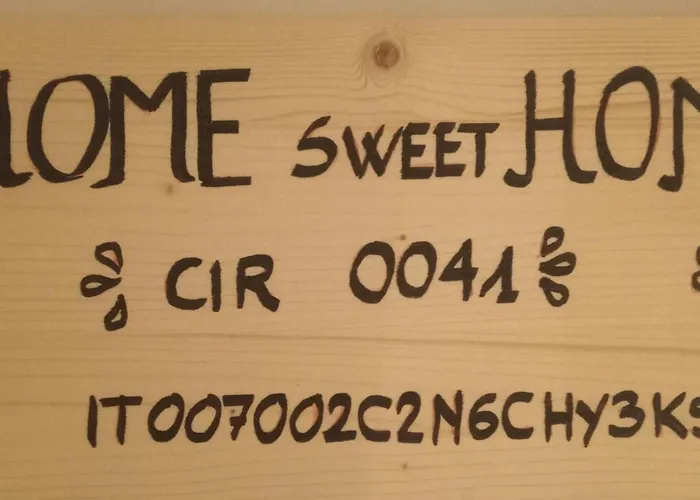 HOME SWEET HOM
CIR 0041
IT007002C2N6CHY3KS